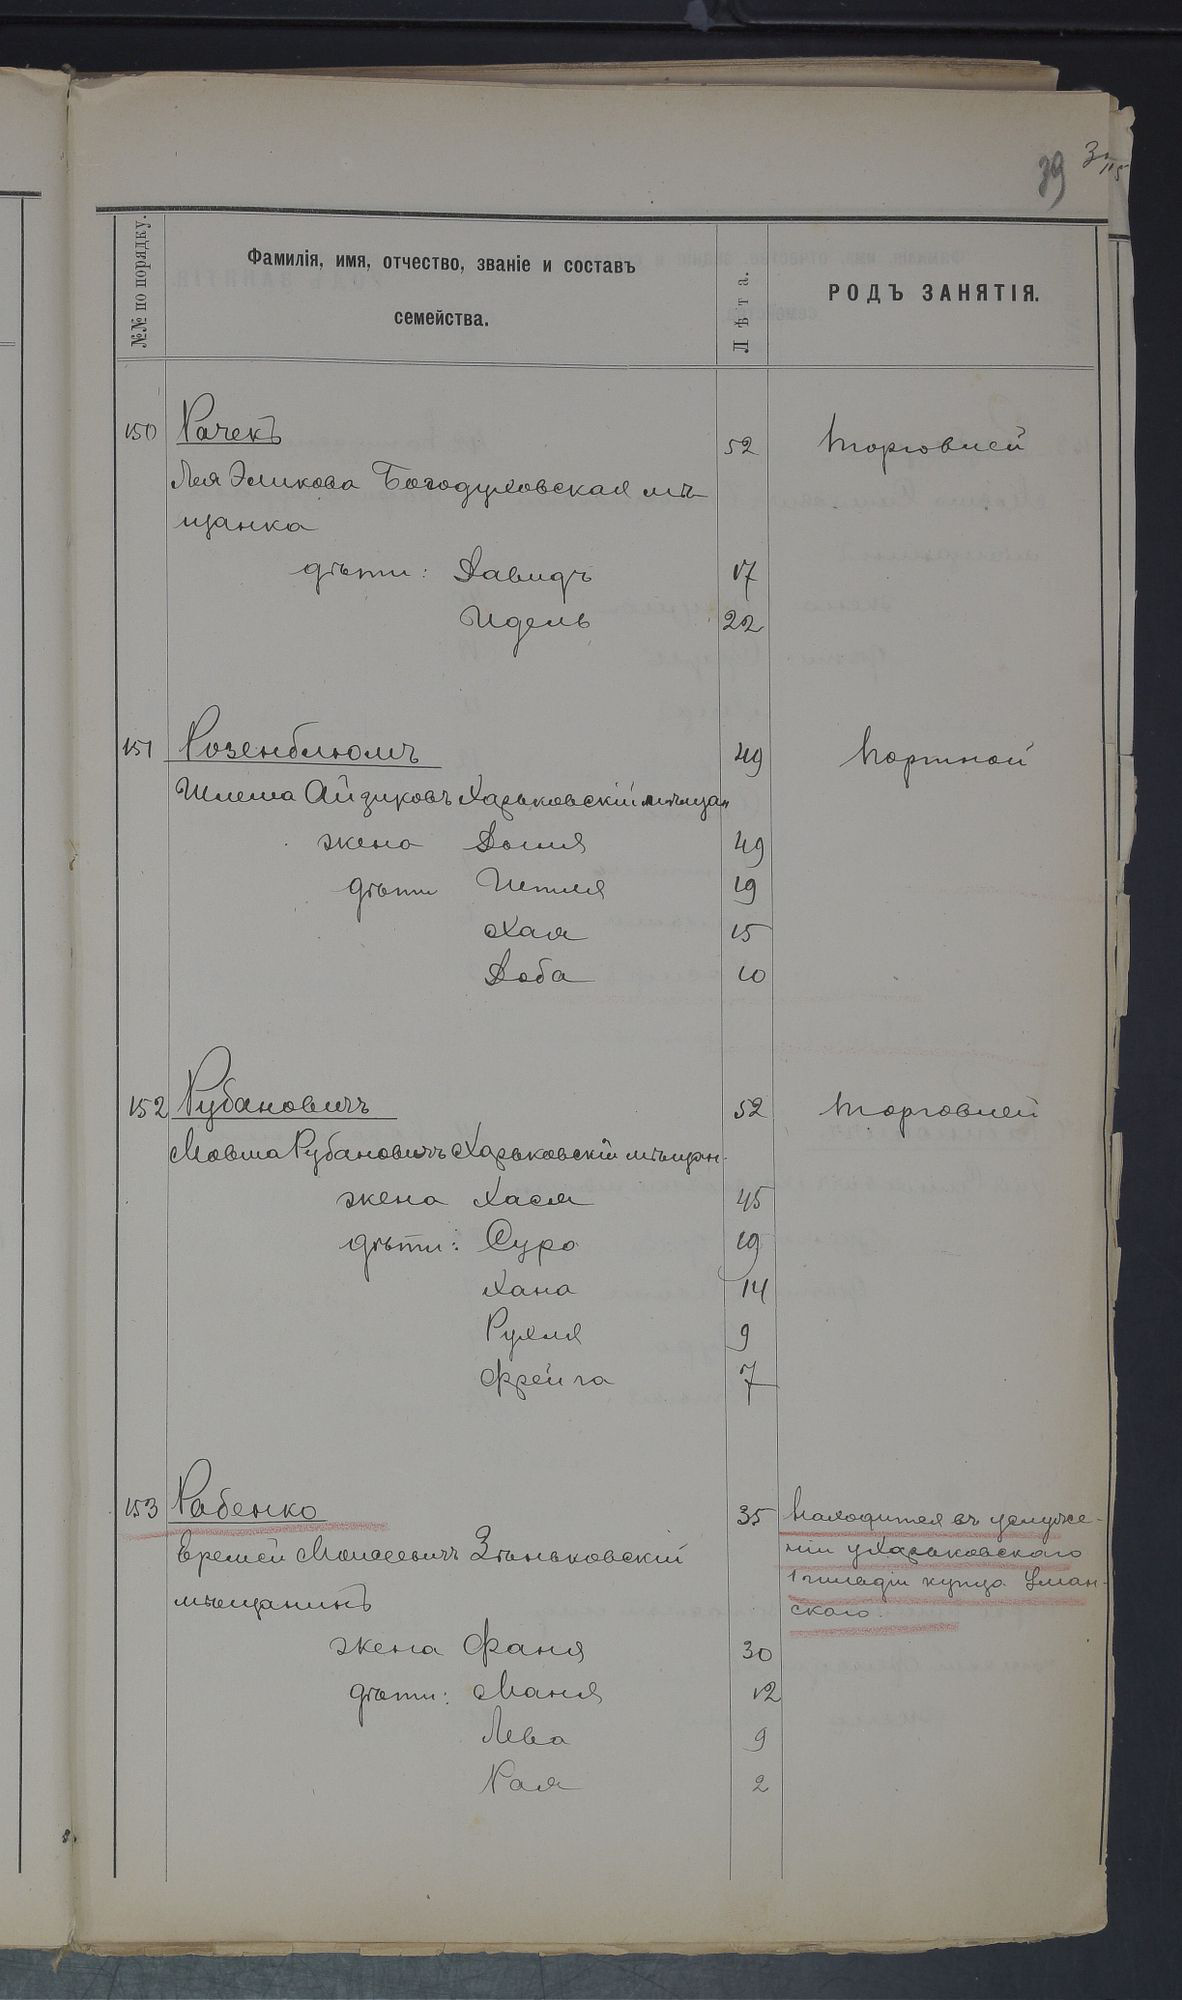 39
№№ по порядку.
Фамилія, имя, отчество, званіе и составъ
семейства.
Лѣта.
РОДЪ ЗАНЯТІЯ.
150 Рачекъ 52 торговлей
Лея Эликова Богодуховская мѣ-
щанка
дѣти: Давидъ 17
Идель 22
151 Розенблюмъ 49 портной
Шлема Айзиковъ Харьковскій мѣщан
жена Доня 49
дѣти 19
Хая 15
Доба 10
152 Рубановичъ 52 торговлей
Мовша Рубановичъ Харьковскій мѣщан.
жена Хася 45
дѣти: Сура 19
Хана 14
Рухля 9
Фрейга 7
153 Рабенко 35 Находится въ услуже-
ніи у Харьковскаго
Еремей Моисеевичъ Зѣньковскій
1 гильдіи купца Уман-
мѣщанинъ
скаго.
жена Фаня 30
дѣти: Маня 12
Лева 9
Рая 2